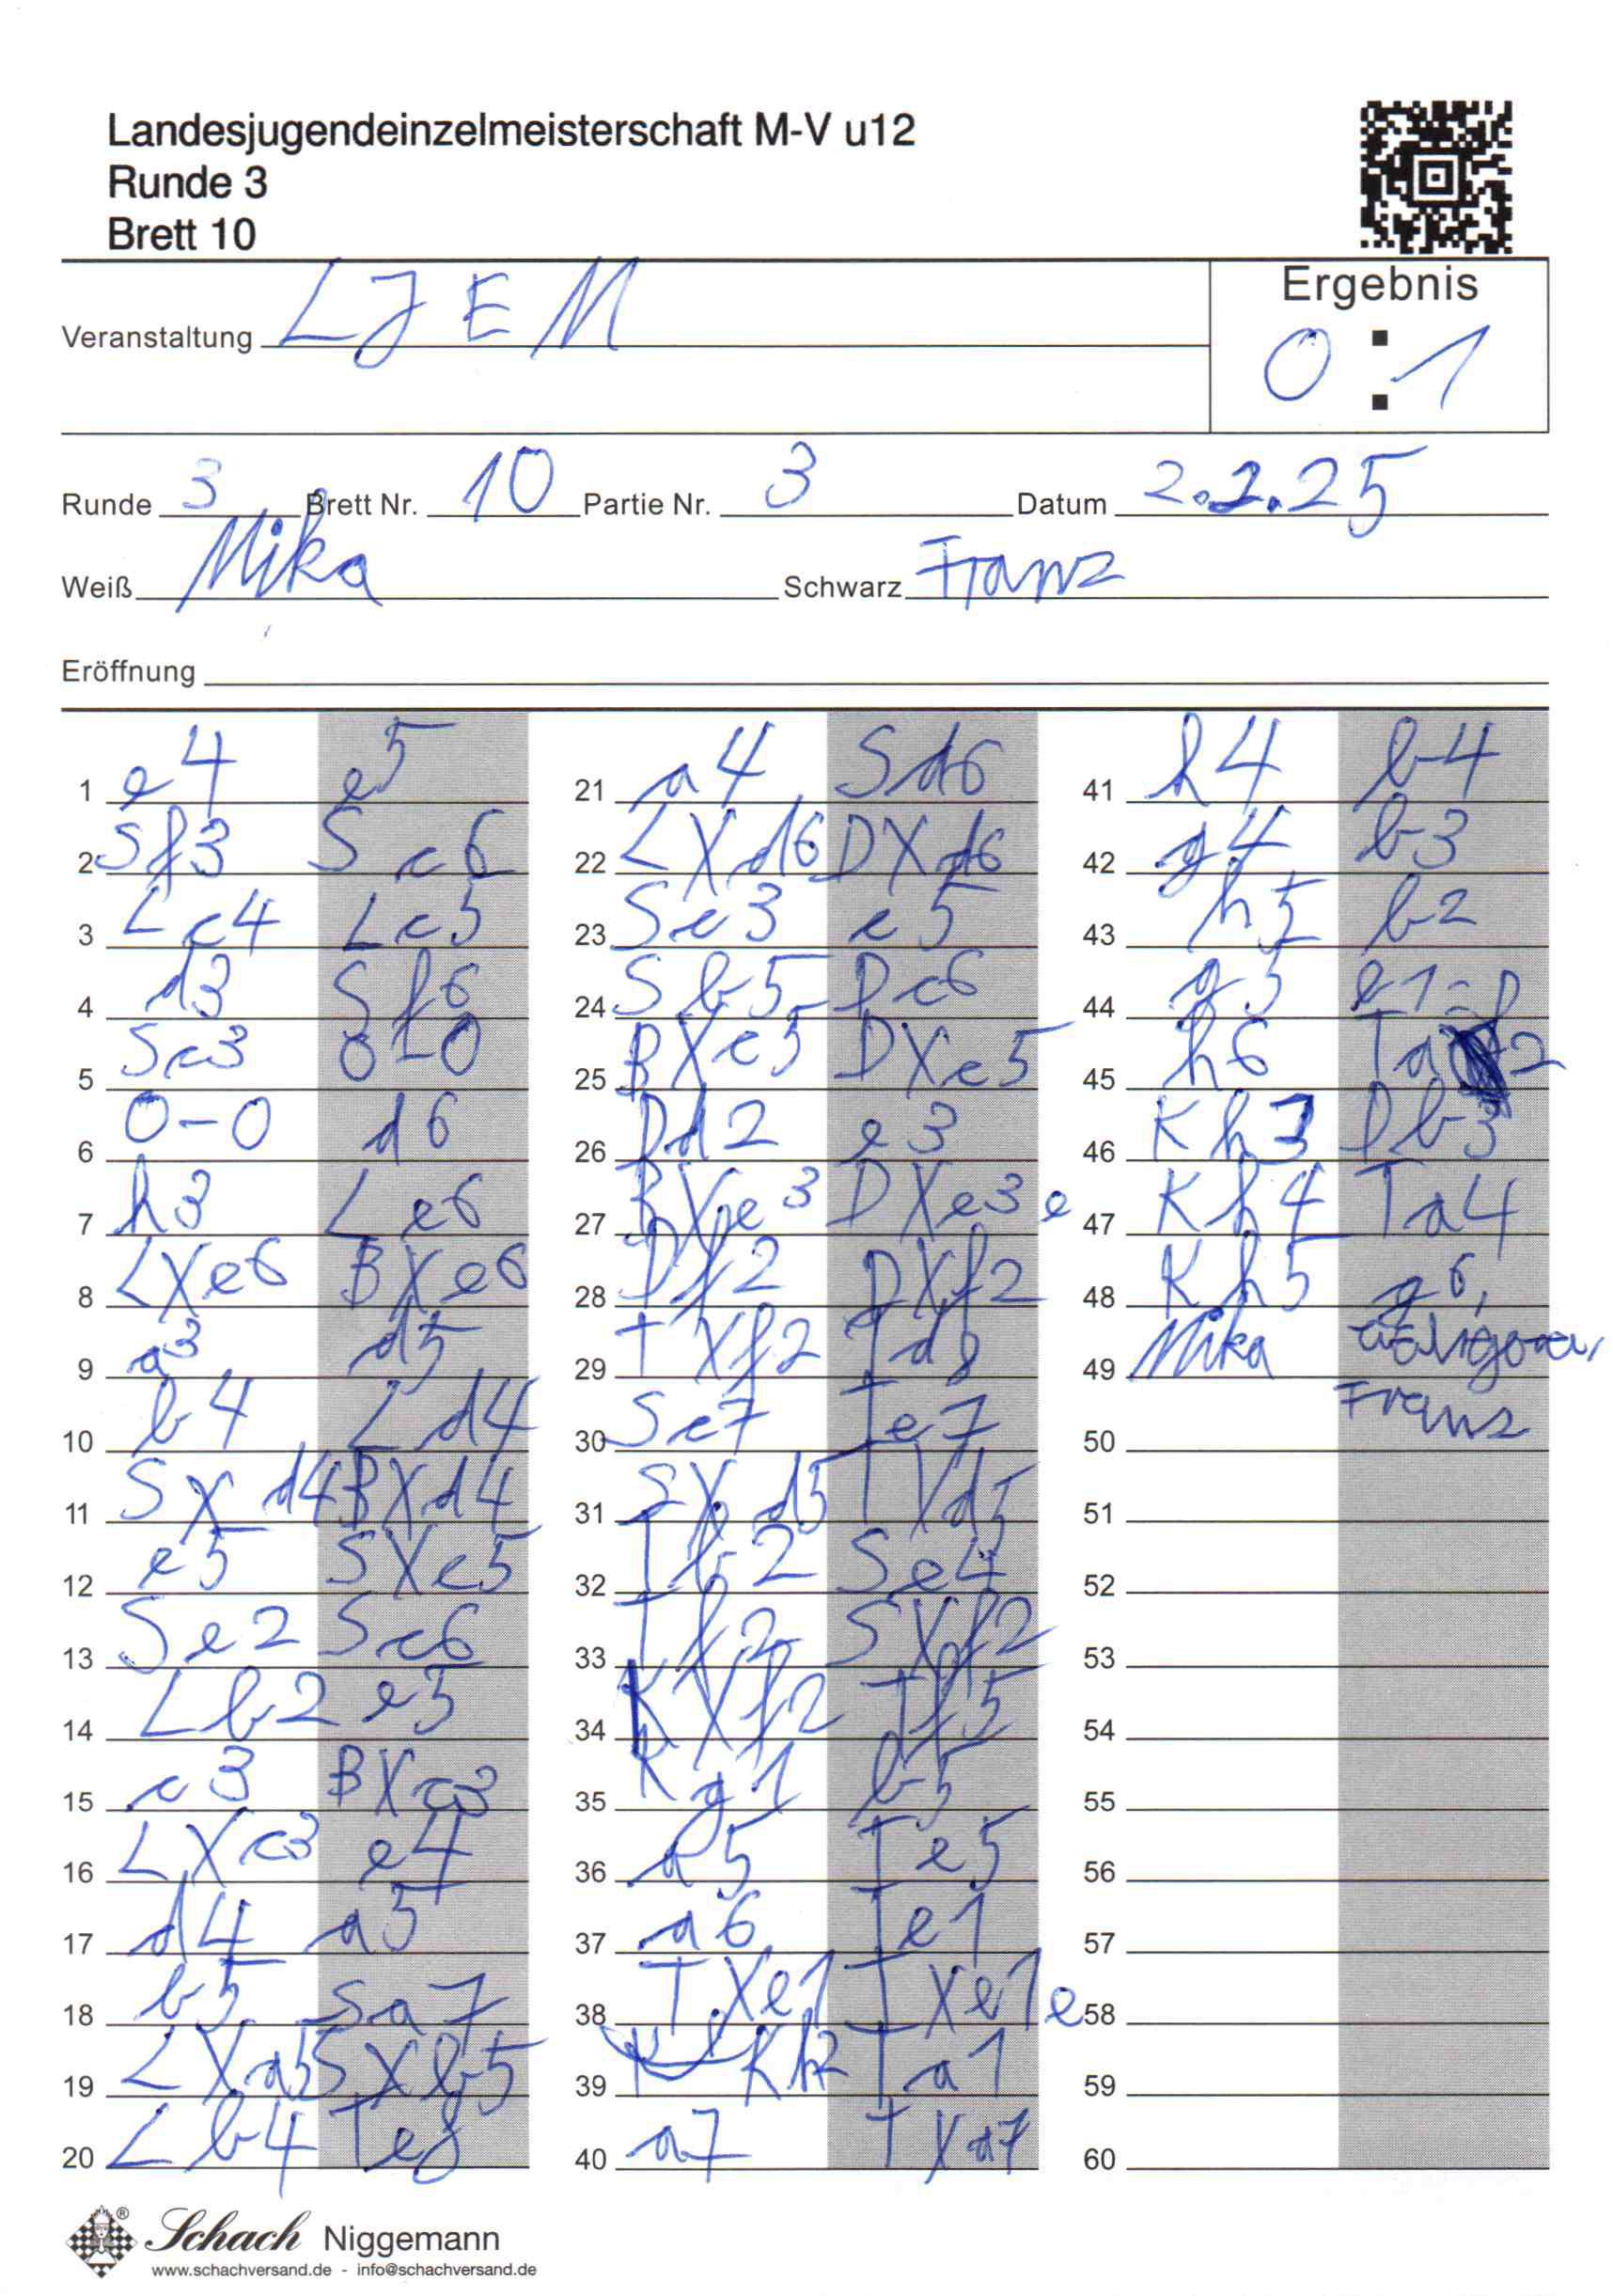 Landesjugendeinzelmeisterschaft M-V u12
Runde 3
Brett 10
Veranstaltung LJEM
Ergebnis
0 : 1
Runde 3 Brett Nr. 10 Partie Nr. 3 Datum 2.2.25
Weiß Mika Schwarz Franz
Eröffnung
1 e4 e5
2 Sf3 Sc6
3 Lc4 Lc5
4 d3 Sf6
5 Sc3 0-0
6 0-0 d6
7 h3 Le6
8 LXe6 BXe6
9 a3 d5
10 b4 Ld4
11 SXd4 BXd4
12 e5 SXe5
13 Se2 Sc6
14 Lb2 e5
15 c3 BXc3
16 LXc3 e4
17 d4 a5
18 b5 Sa7
19 LXa5 SXb5
20 Lb4 Te8
21 a4 Sd6
22 LXd6 DXd6
23 Sc3 e5
24 Sb5 Dc6
25 BXe5 DXe5
26 Dd2 e3
27 BXe3 DXe3e
28 Df2 DXf2
29 TXf2 Td8
30 Sc7 Te7
31 SXd5 TXd5
32 Tb2 Se4
33 Tf2 SXf2
34 KXf2 Tf5
35 Kg1 b5
36 a5 Te5
37 a6 Te1
38 TXe1 TXe1e
39 Kh2 Ta1
40 a7 TXa7
41 h4 b4
42 g4 b3
43 h5 b2
44 g5 b1=D
45 h6 Ta2
46 Kh3 Db3
47 Kh4 Ta4
48 Kh5 g6,
49 Mika
Franz
50
51
52
53
54
55
56
57
58
59
60
Schach Niggemann
www.schachversand.de - info@schachversand.de